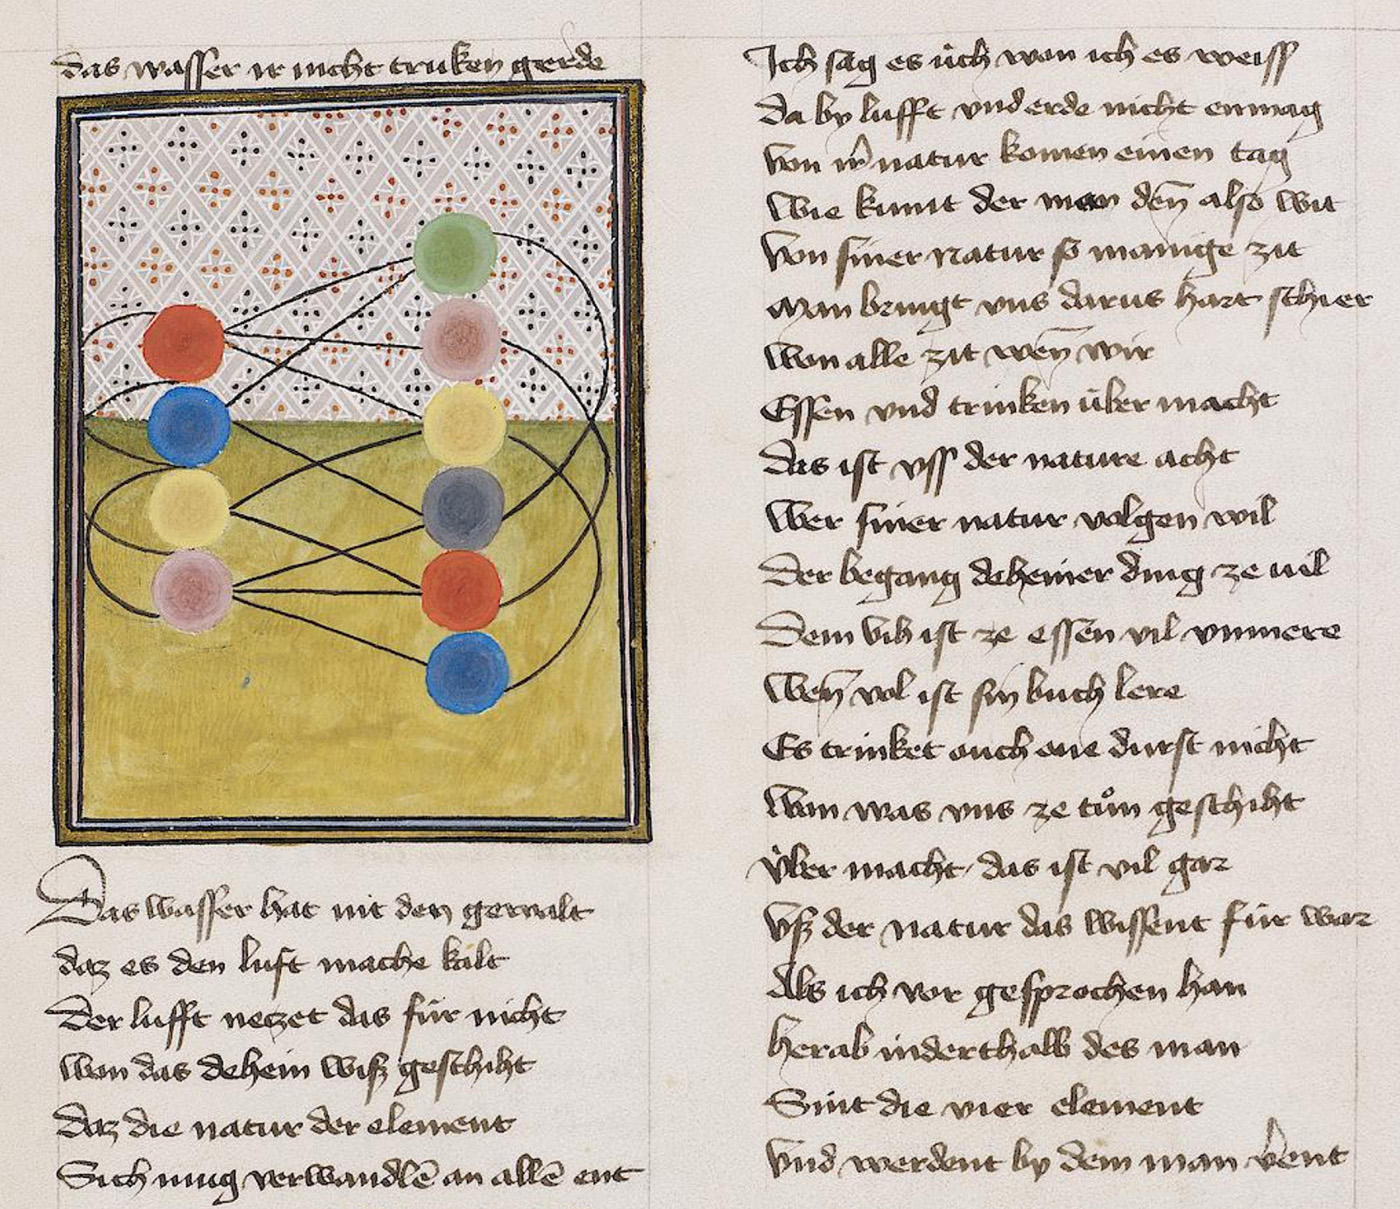 das wasser ir nicht truken gerde
Das wasser hat nit den gewalt
daz es den luft mache kalt
Der lufft neczet das für nicht
wan das dehein wisz geschiht
Daz die natur der element
Sich mug verwandlē an allē ent
Ich sag es üch wan ich es weiss
da by lufft vnd erde nicht enmag
von ir natur komen einen tag
Wie kumt der man den̄ also wit
Von siner natur so manige zit
Man bringt vns darus hart schier
Won alle zit wen̄ wir
Essen vnd trinken über macht
das ist vss der nature acht
Wer siner natur volgen wil
Der begang deheiner ding ze uil
Dem vih ist ze essen vil vnmere
Wen̄ vol ist sin buch lere
Es trinket ouch ane durst nicht
Wan was vns ze tůn geschiht
Vber macht das ist vil gar
Vsz der natur das wissent für war
Als ich vor gesprochen han
herab inderthalb des man
Sint die vier element
Vnd werdent by dem man